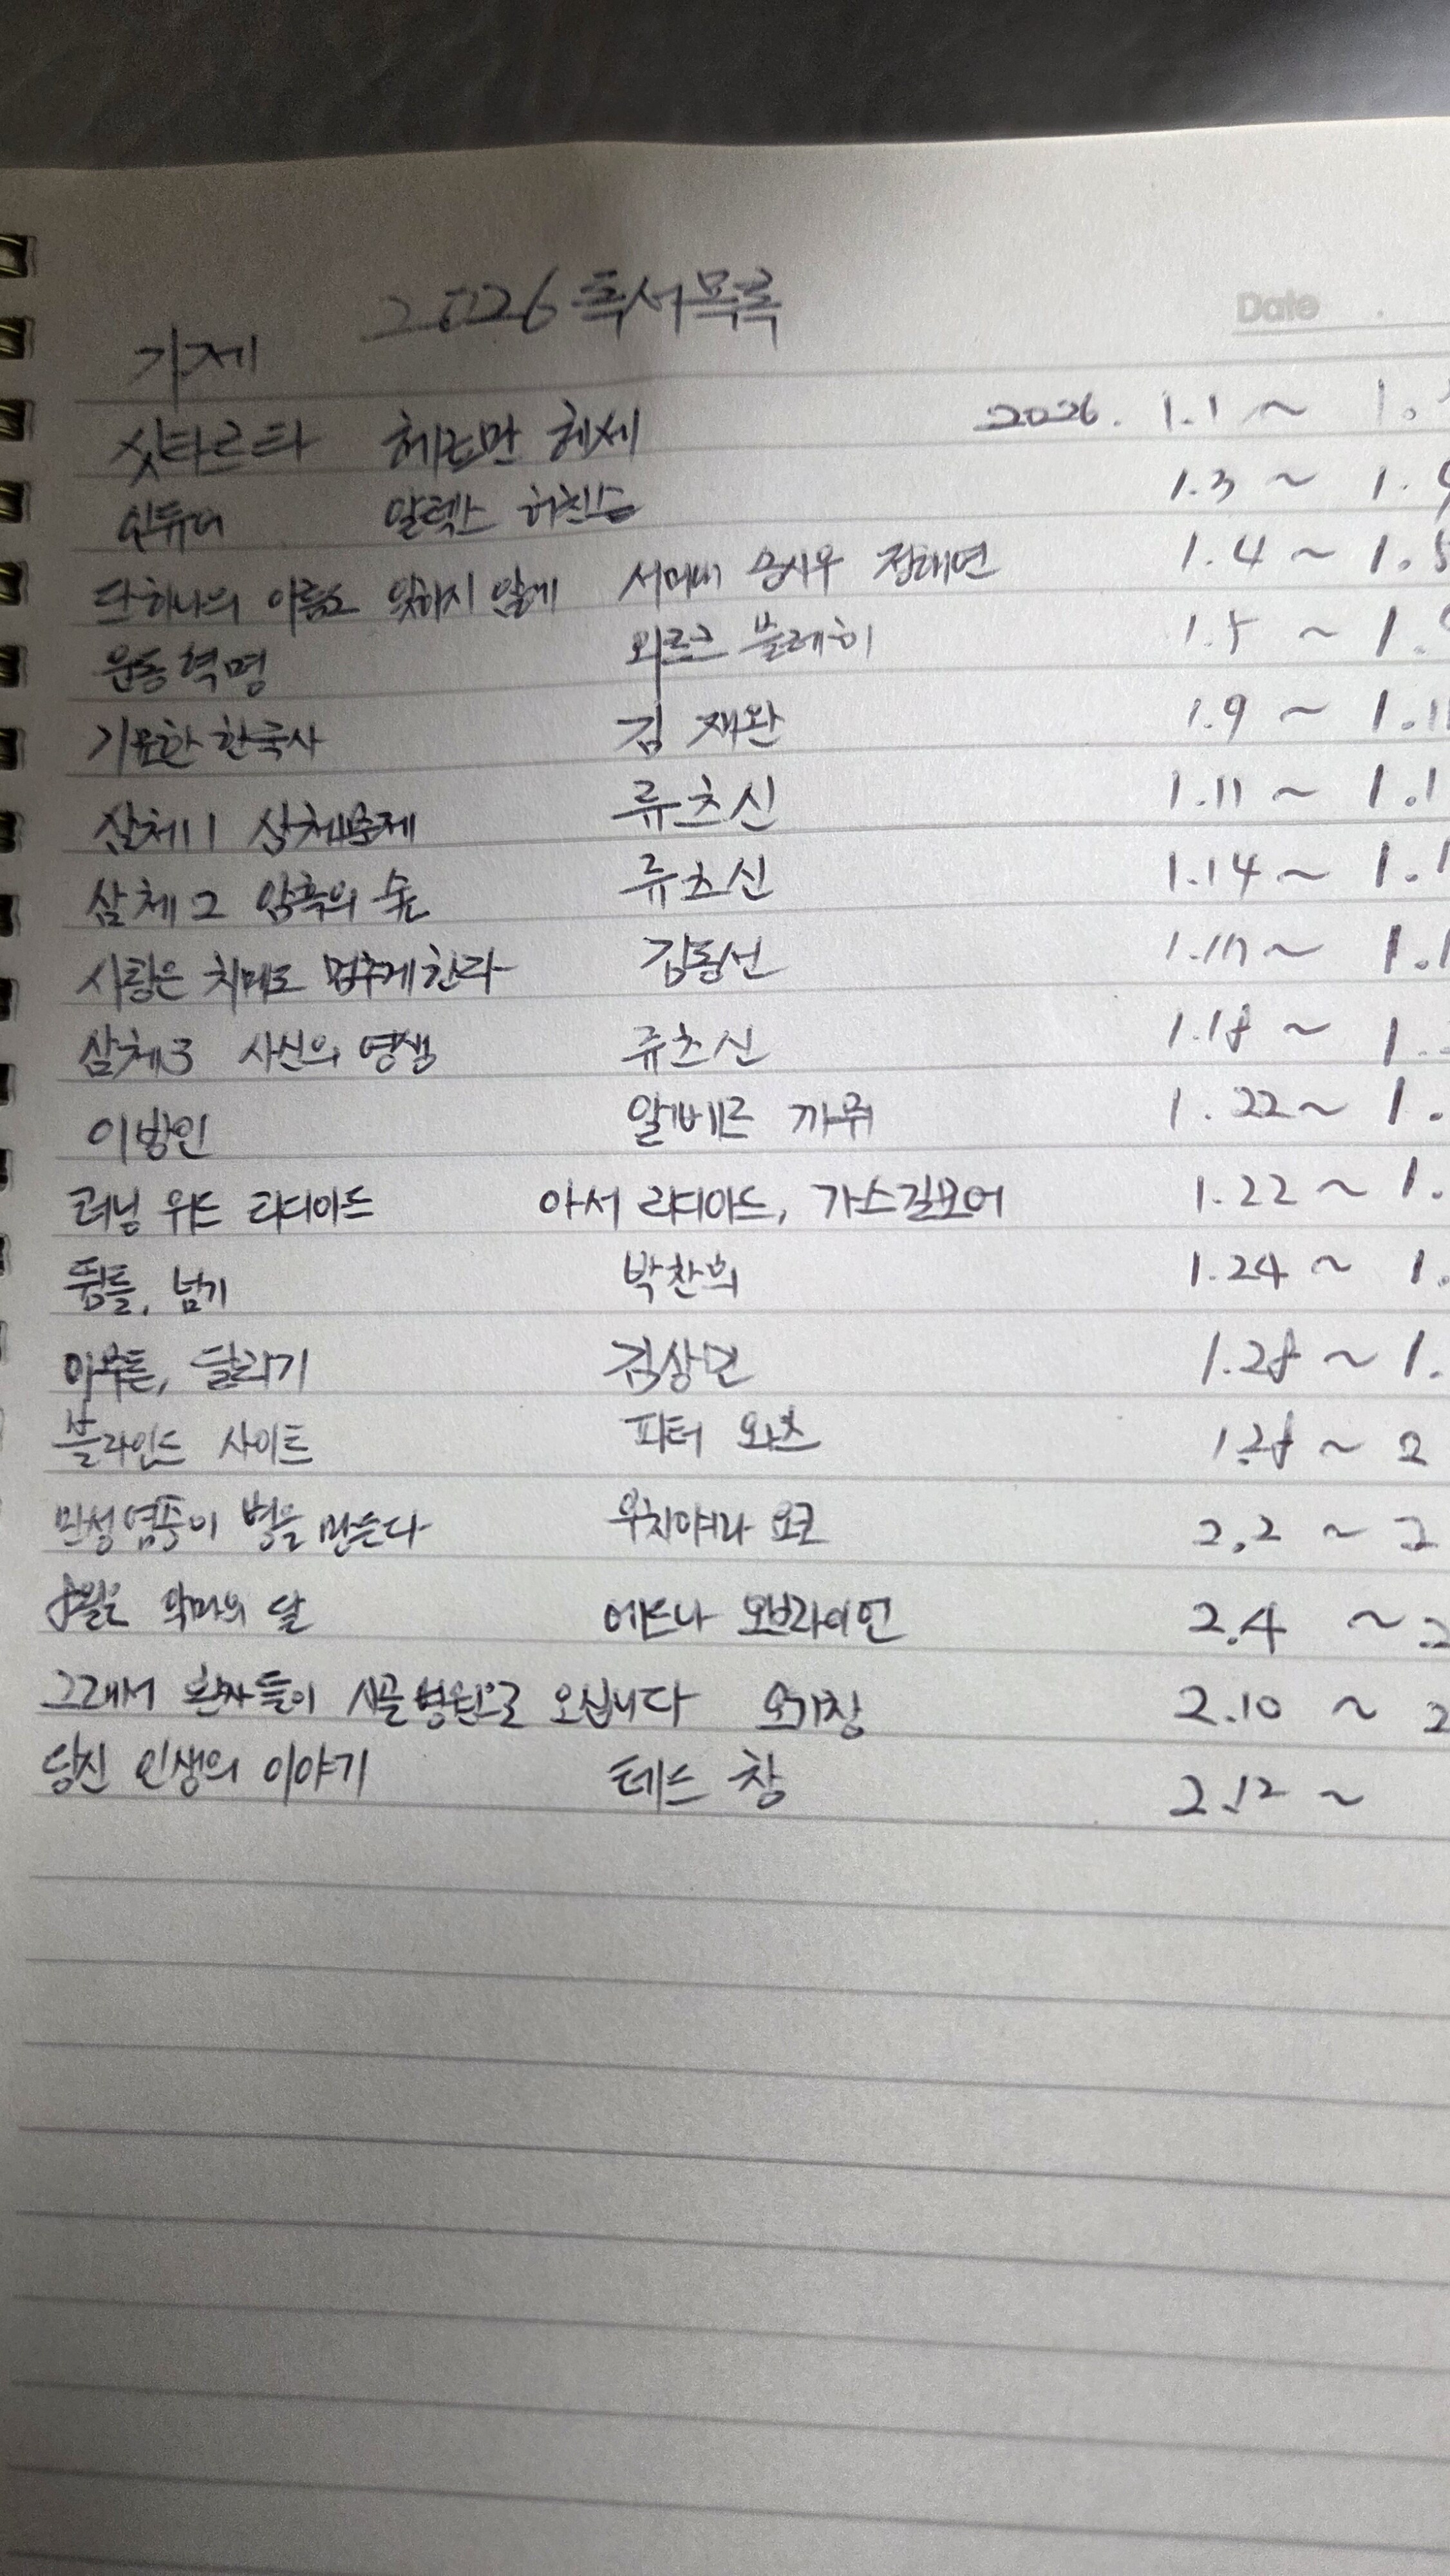 2026 독서목록
Date
가제
싯타르타 헤르만 헤세 2026. 1.1 ~ 1.
인듀어 알렉스 허친슨 1.3 ~ 1.
단 하나의 이름도 잊히지 않게 서미애 송시우 정해연 1.4 ~ 1.
운동혁명 외르크 블레히 1.5 ~ 1.
기묘한 한국사 김재완 1.9 ~ 1.11
삼체1 삼체문제 류츠신 1.11 ~ 1.1
삼체2 암흑의 숲 류츠신 1.14 ~ 1.1
사랑은 치매도 멈추게한다 김동선 1.17 ~ 1.1
삼체3 사신의 영생 류츠신 1.18 ~ 1.
이방인 알베르 까뮈 1.22 ~ 1.
러닝 위드 리디아드 아서 리디아드, 가스길모어 1.22 ~ 1.
뜀틀, 넘기 박찬희 1.24 ~ 1.
아무튼, 달리기 김상민 1.28 ~ 1.
블라인드 사이트 피터 와츠 1.28 ~ 2
만성염증이 병을 만든다 우치야마 요코 2.2 ~ 2
8월은 악마의 달 에드나 오브라이언 2.4 ~ 2
그래서 환자들이 시골병원으로 오십니다 오기창 2.10 ~ 2
당신 인생의 이야기 테드 창 2.12 ~